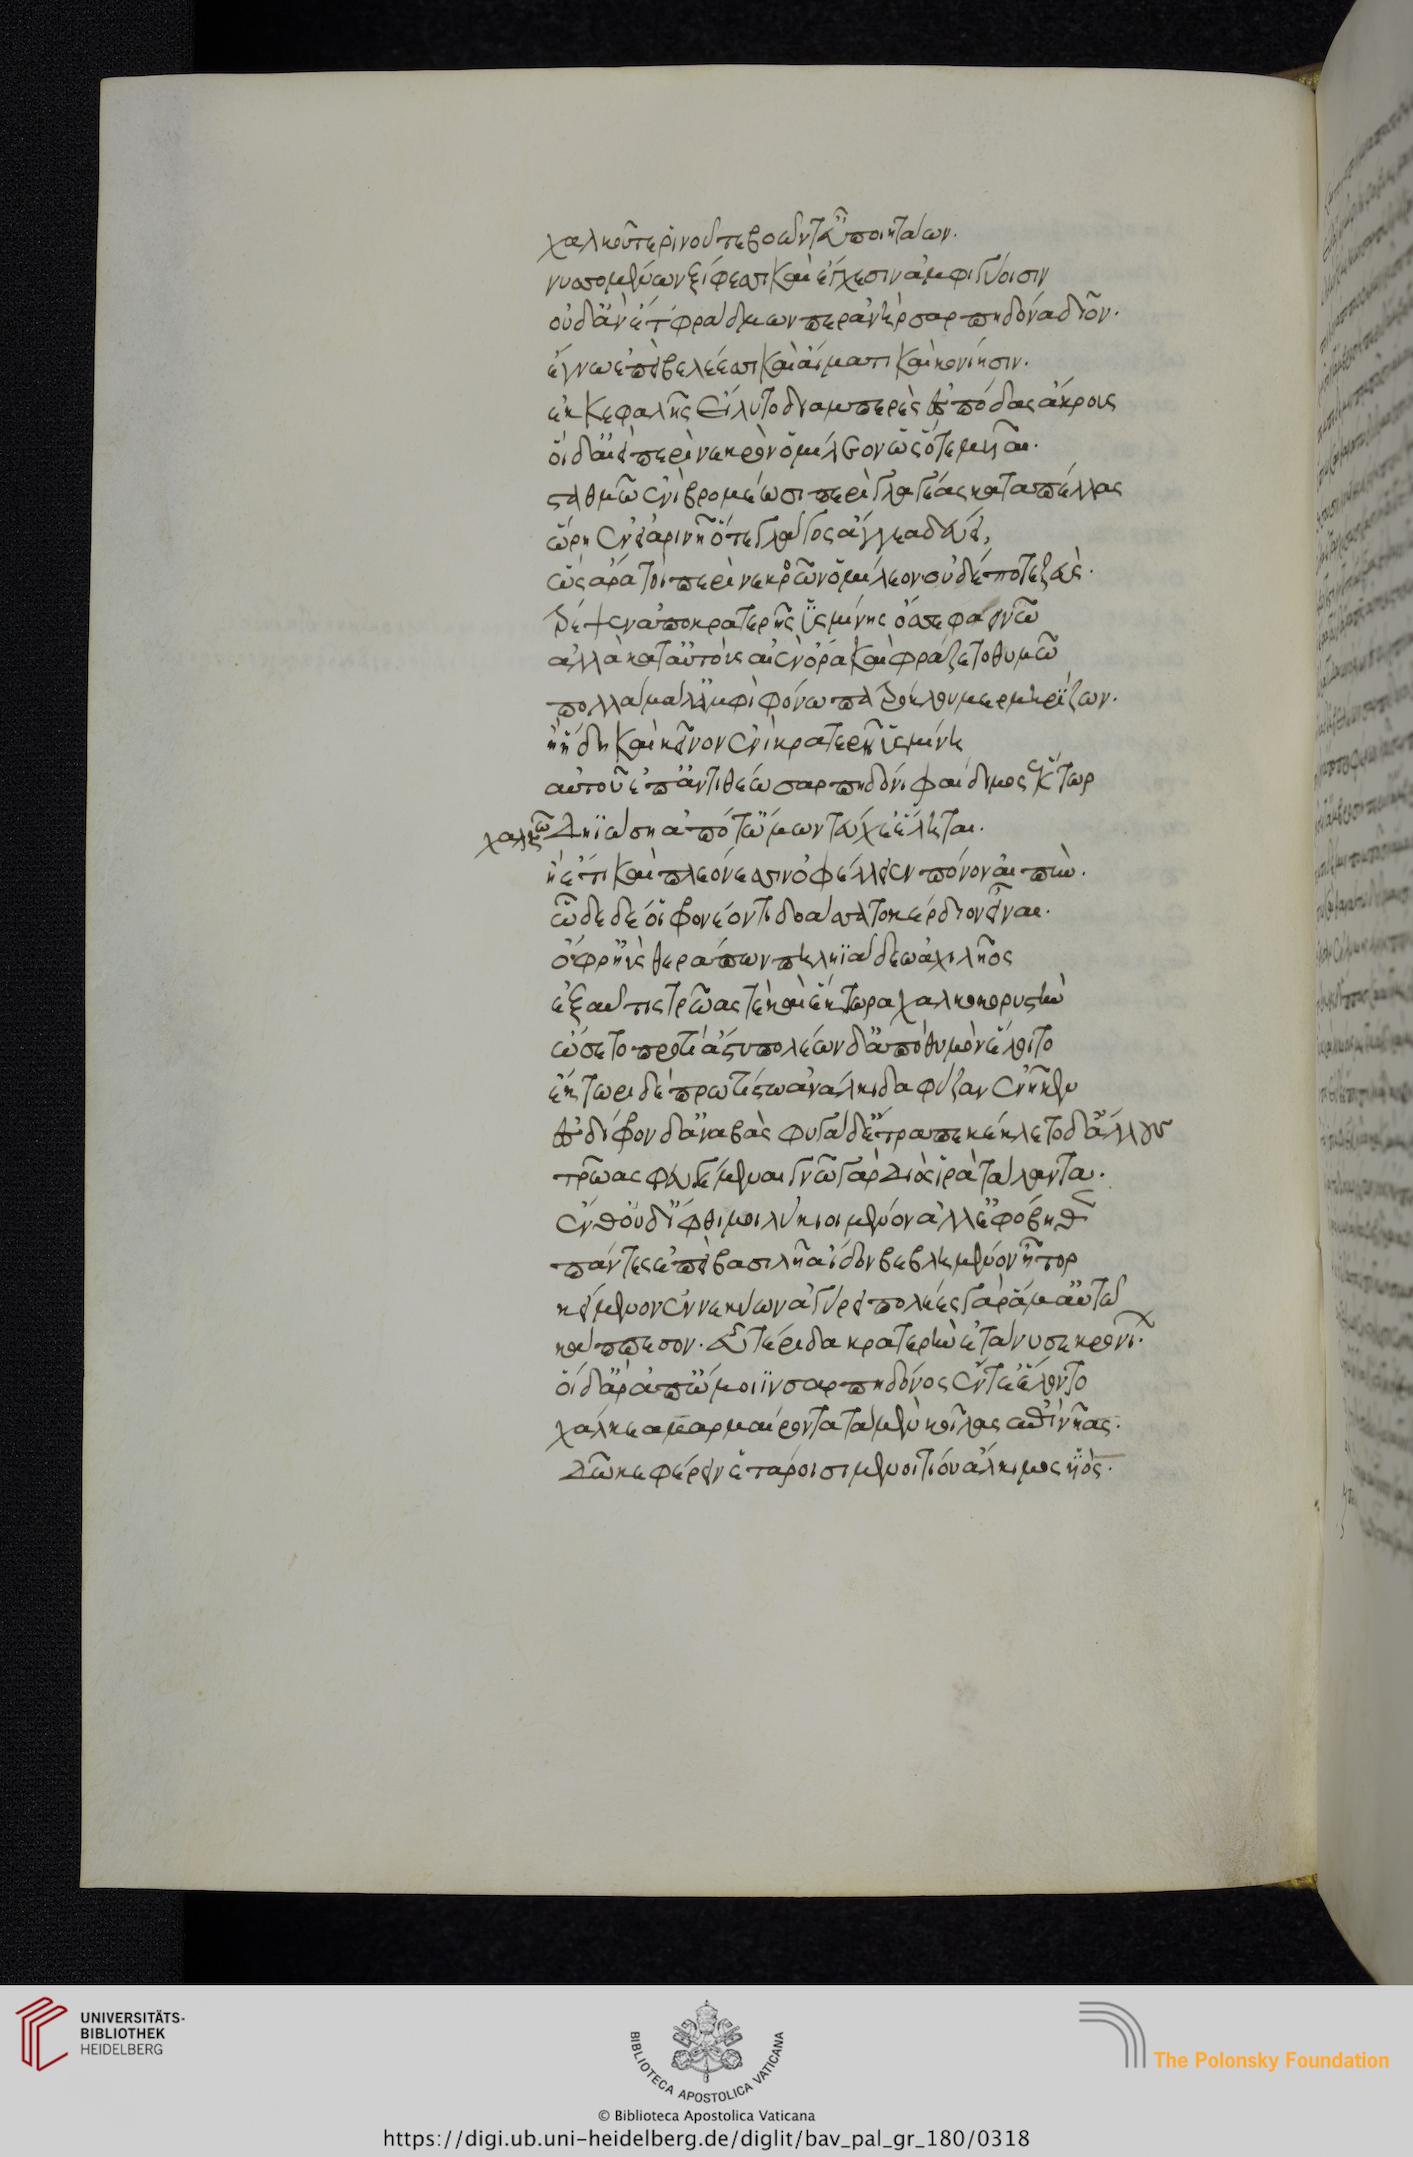 χαλκοῦ τε ῥινοῦ τε βοῶν τ' εὖ ποιητάων.
νυσσομένων ξίφεσι καὶ ἔγχεσιν ἀμφιγύοισιν
οὐδ' ἂν ἔτι φράδμων περ ἀνὴρ σαρπηδόνα δῖον.
ἔγνω ἐπεὶ βελέεσσι καὶ αἵματι καὶ κονίησιν.
ἐκ κεφαλῆς εἴλυτο διαμπερὲς ἐς πόδας ἄκρους
οἱ δ' αἰεὶ περὶ νεκρὸν ὁμίλεον ὡς ὅτε μυῖαι.
σταθμῶ ἐνὶ βρομέωσι περὶ γλαγέας κατὰ πέλλας
ὥρη ἐν εἰαρινῆ ὅτε γλάγος ἄγγεα δεύει,
ὣς ἄρα τοὶ περὶ νεκρῶν ὁμίλεον οὐδέ ποτε ζεὺς.
τρέψεν ἀπὸ κρατερῆς ὑσμίνης ὄσσε φαεινῶ
ἀλλὰ κατ' αὐτοὺς αἰὲν ὅρα καὶ φράζετο θυμῶ
πολλὰ μάλ' ἀμφὶ φόνω πατρόκλου μερμηρίζων.
ἢ ἤδη καὶ κεῖνον ἐνὶ κρατερῆ ὑσμίνη
αὐτοῦ ἐπ' ἀντιθέω σαρπηδόνι φαίδιμος ἕκτωρ
χαλκῶ δηϊώση ἀπό τ' ὤμων τεύχε' ἕληται.
ἢ ἔτι καὶ πλεόνεσσιν ὀφέλλειεν πόνον αἰπύν.
ὧδε δέ οἱ φρονέοντι δοάσσατο κέρδιον εἶναι.
ὄφρ' ἠῢς θεράπων πηληϊάδεω ἀχιλῆος
ἐξαῦτις τρῶας τε καὶ ἕκτωρα χαλκοκορυστὴν
ὤσετο προτὶ ἄστυ πολέων δ' ἀπὸ θυμὸν ἕλοιτο
ἕκτωρι δὲ πρωτίστω ἀνάλκιδα φύζαν ἐνῆκεν
ἐς δίφρον δ' ἀναβὰς φύγαδ' ἔτραπε κέκλετο δ' ἄλλους
τρῶας φευγέμεναι γνῶ γὰρ διὸς ἱρὰ τάλαντα.
ἔνθ' οὐδ' ἴφθιμοι λύκιοι μένον ἀλλ' ἐφόβηθεν
πάντες ἐπεὶ βασιλῆα ἴδον βεβλημένον ἦτορ
κείμενον ἐν νεκύων ἀγύρει πολέες γὰρ ἅμ' αὐτῶ
κάππεσον. εὖτ' ἔριδα κρατερὴν ἐτάνυσε κρονίων.
οἱ δ' ἄρ' ἀπ' ὤμοιϊν σαρπηδόνος ἔντε' ἕλοντο
χάλκεα μαρμαίροντα τὰ μὲν κοίλας ἐπὶ νῆας.
δῶκε φέρειν ἑτάροισι μενοιτίου ἄλκιμος υἱός.
UNIVERSITÄTS-
BIBLIOTHEK
HEIDELBERG
BIBLIOTECA APOSTOLICA VATICANA
The Polonsky Foundation
© Biblioteca Apostolica Vaticana
https://digi.ub.uni-heidelberg.de/diglit/bav_pal_gr_180/0318